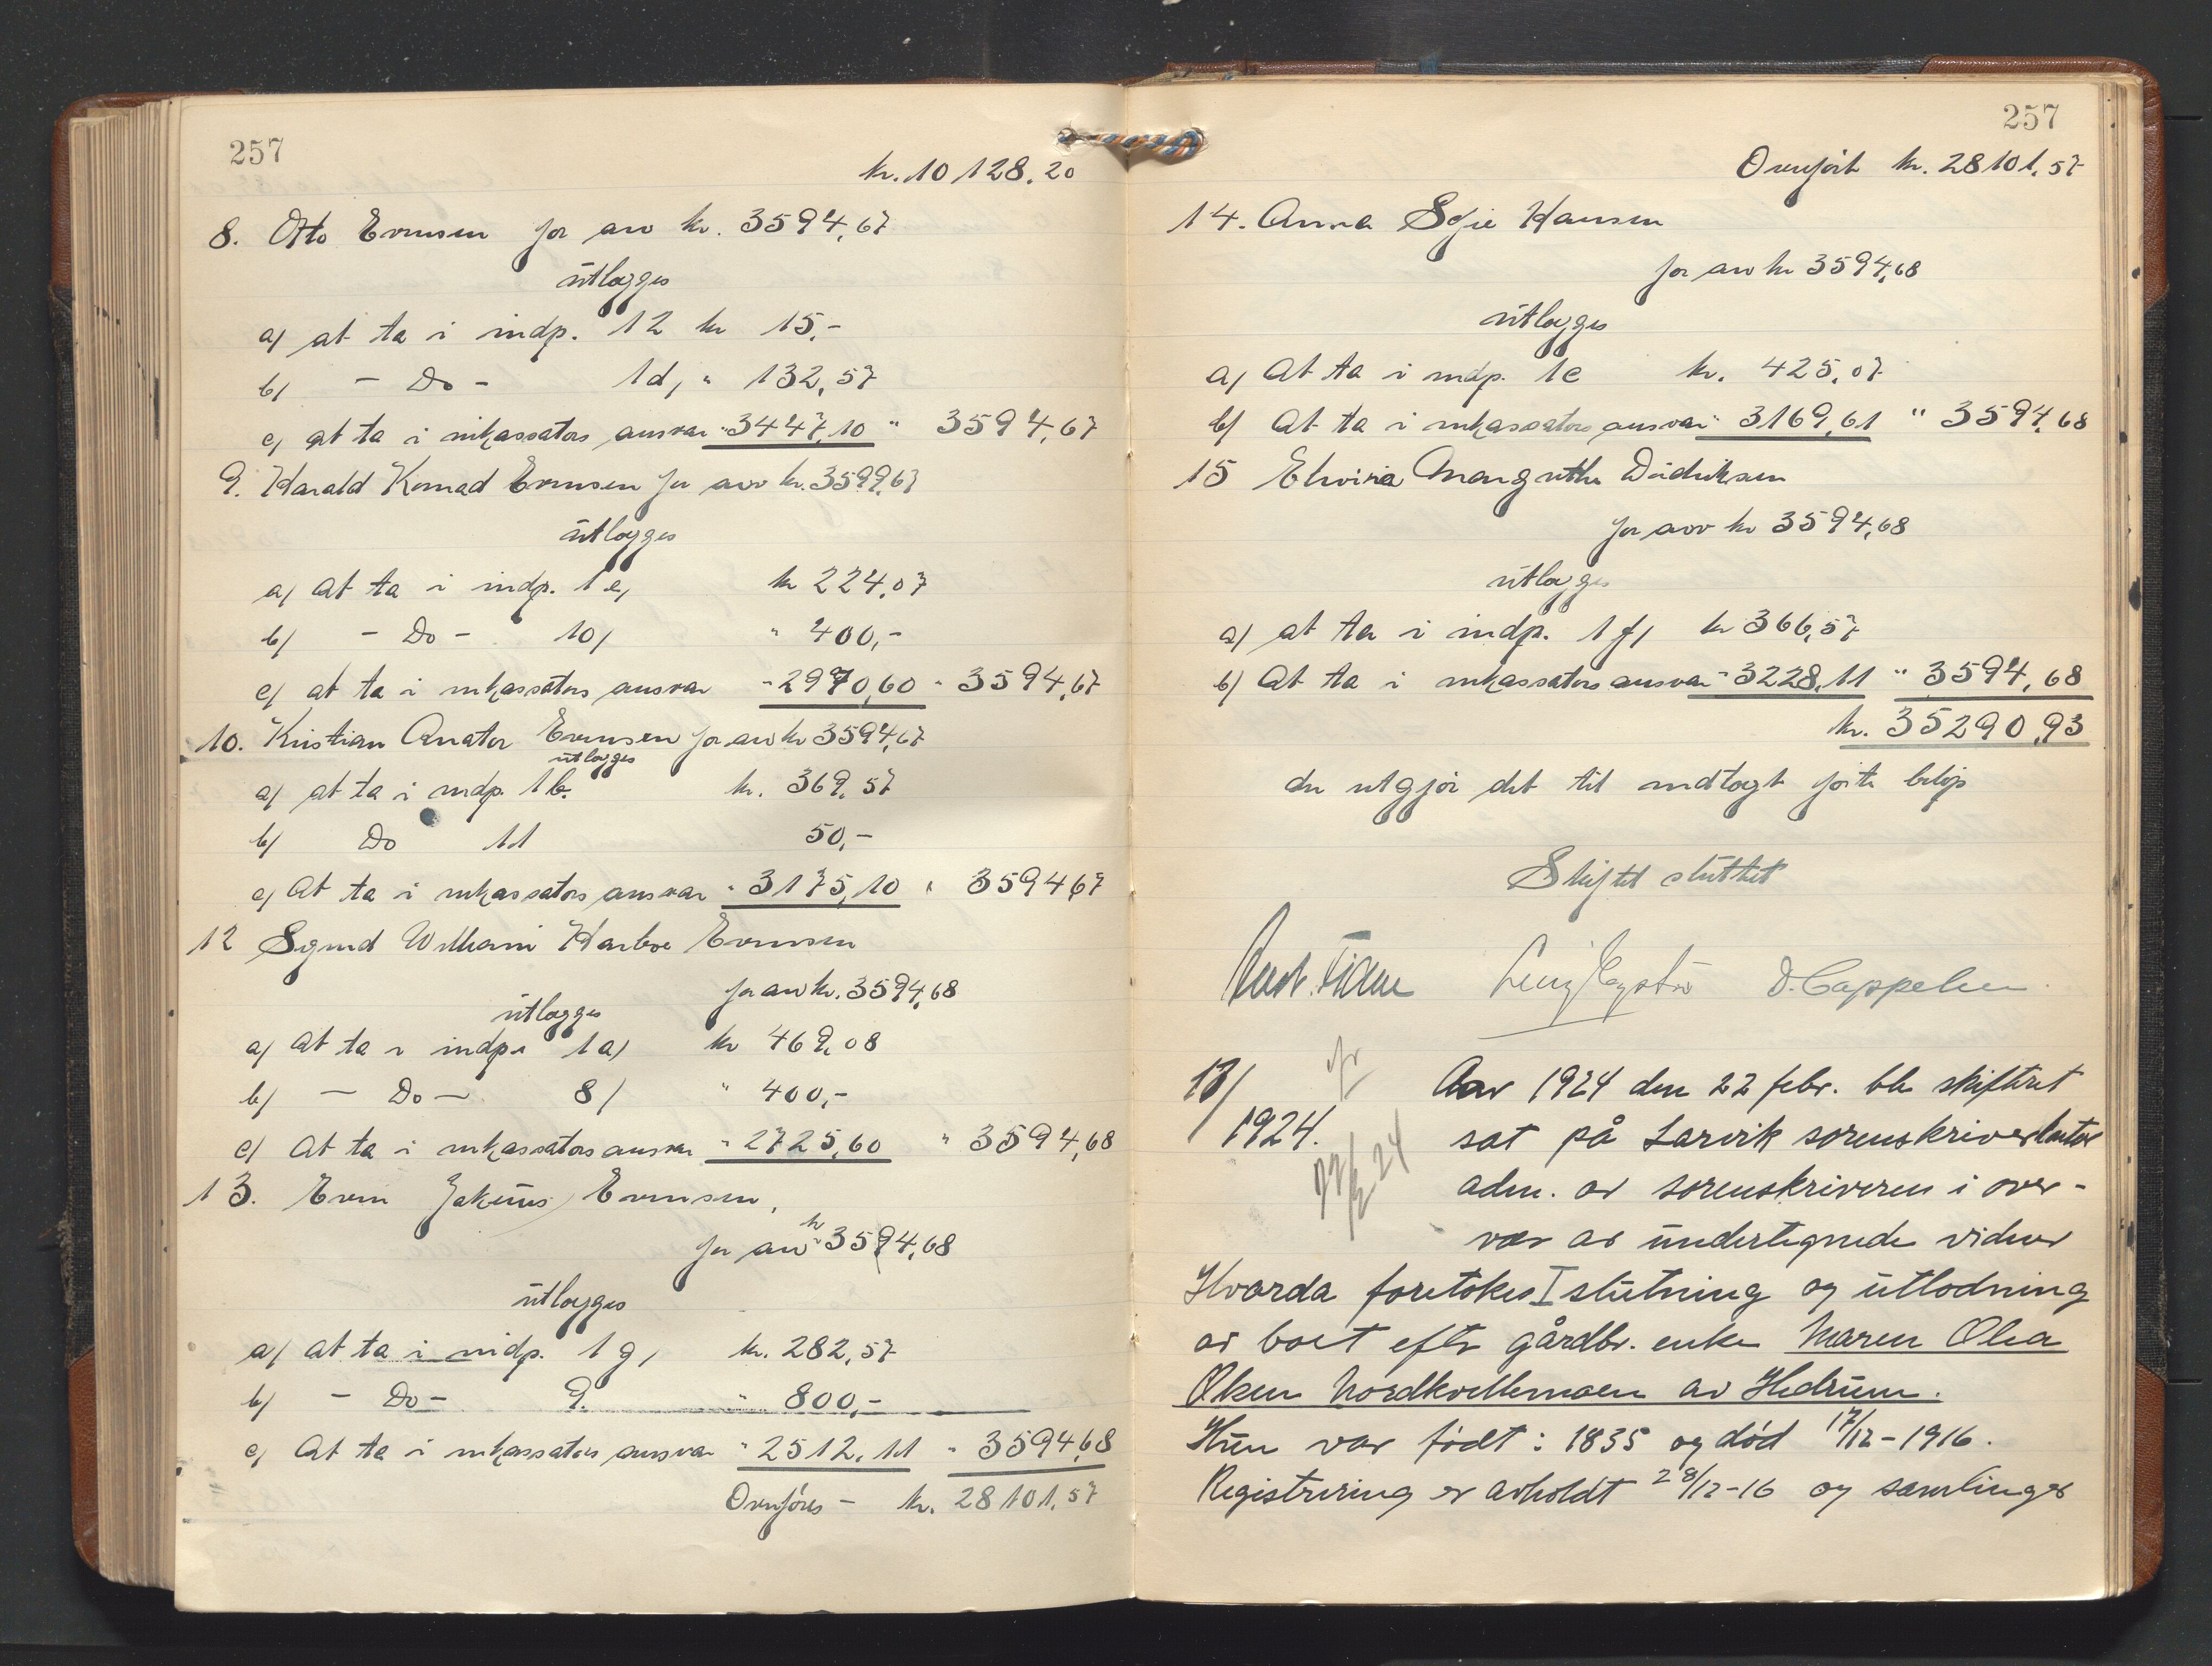 257
kr. 10 128.20
8. Otto Evensen for arv kr. 3594,67
utlægges
a) at ta i indp. 12 kr 15,-
b) - Do - 1d, " 132,57
c) at ta i inkassators ansvar " 3447,10 " 3594,67
9. Harald Konrad Evensen for arv kr. 3594,67
utlægges
a) at ta i indp. 1 e, kr 224,07
b) - Do - 10) " 400,-
c) at ta i inkassators ansvar " 2970,60 " 3594,67
10. Kristian Anator Evensen for arv kr 3594,67
utlægges
a) at ta i indp. 1 b. kr. 369,57
b) Do 11 50,-
c) At ta i inkassators ansvar " 3175,10 " 3594,67
12 Sigurd William Evensen
for arv kr. 3594,68
utlægges
a) at ta i indp. 1 a) kr 469,08
b) - Do - 8) " 400,-
c) At ta i inkassators ansvar " 2725,60 " 3594,68
13. Even Jakinus Evensen,
for arv kr 3594,68
utlægges
a) at ta i indp. 1 g, kr. 282,57
b) - Do - 9. " 800,-
c) At ta i inkassators ansvar " 2512,11 " 3594,68
Overføres - kr. 28101,57
257
Overført kr. 28101,57
14. Anna Sofie Hansen
for arv kr 3594,68
utlægges
a) At ta i indp. 1c kr. 425,07
b) At ta i inkassators ansvar " 3169,61 " 3594,68
15 Elvina Margrethe Didriksen
for arv kr 3594,68
utlægges
a) at ta i indp. 1 f, kr 366,57
b) At ta i inkassators ansvar " 3228,11 " 3594,68
kr. 35290,93
der utgjør det til indtægt førte beløp
Skiftet sluttet
D. Cappelen.
13/
1924.
Aar 1924 den 22 febr. ble skifteret
sat på Larvik sorenskriverkontor
adm. av sorenskriveren i over-
vær av undertegnede vidner
Hvorda foretokes I slutning og utlodning
av boet efter gårdbr. enke Maren Olea
Olsen Nordkvellemoen av Hedrum.
Hun var født: 1835 og død 17/12-1916.
Registrering er avholdt 28/12-16 og samlinger